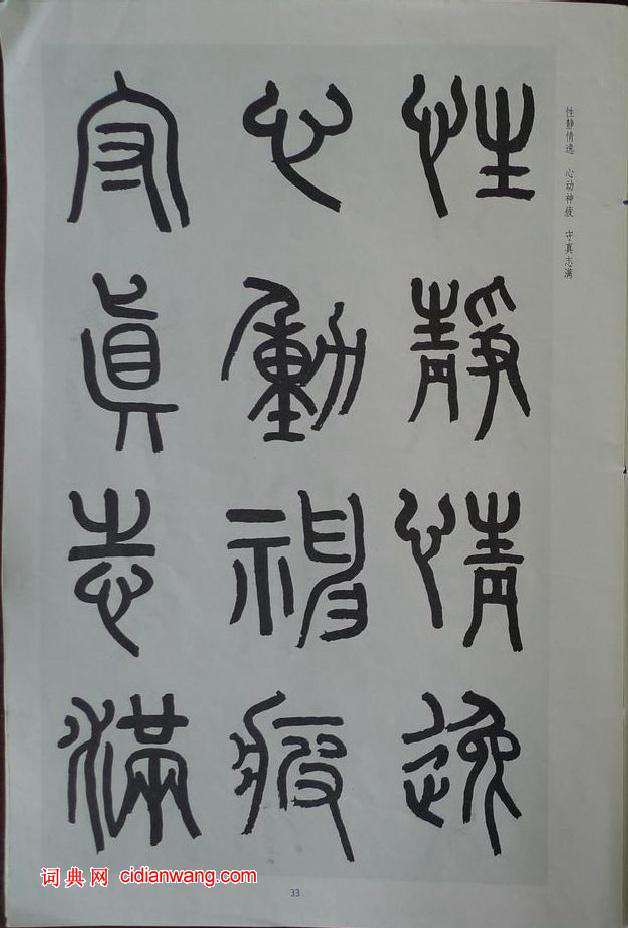 性静情逸 心动神疲 守真志满
性靜情逸
心動神疲
守真志滿
33
词典网 cidianwang.com